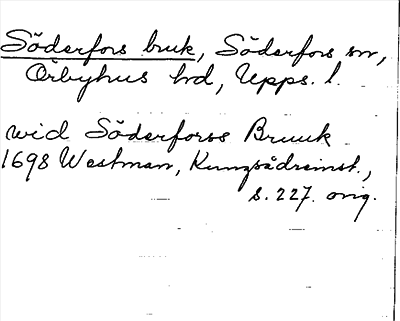 Söderfors bruk, Söderfors sn,
Örbyhus hd, Upps. l.
wid Söderforss Bruuk
1698 Westman, Kungsådreinst.,
s. 227. orig.